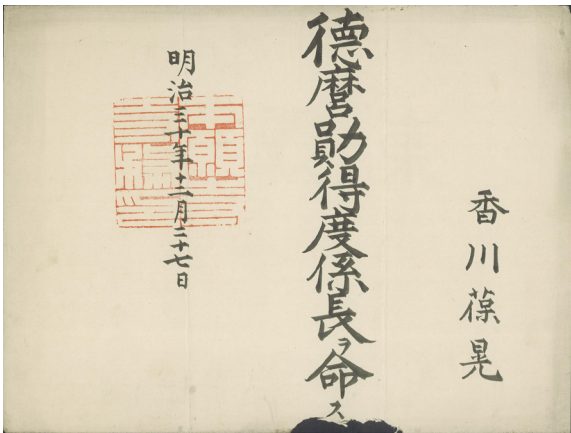 香川葆晃
徳麿勛得度係長ヲ命ス
明治三十年十二月二十七日